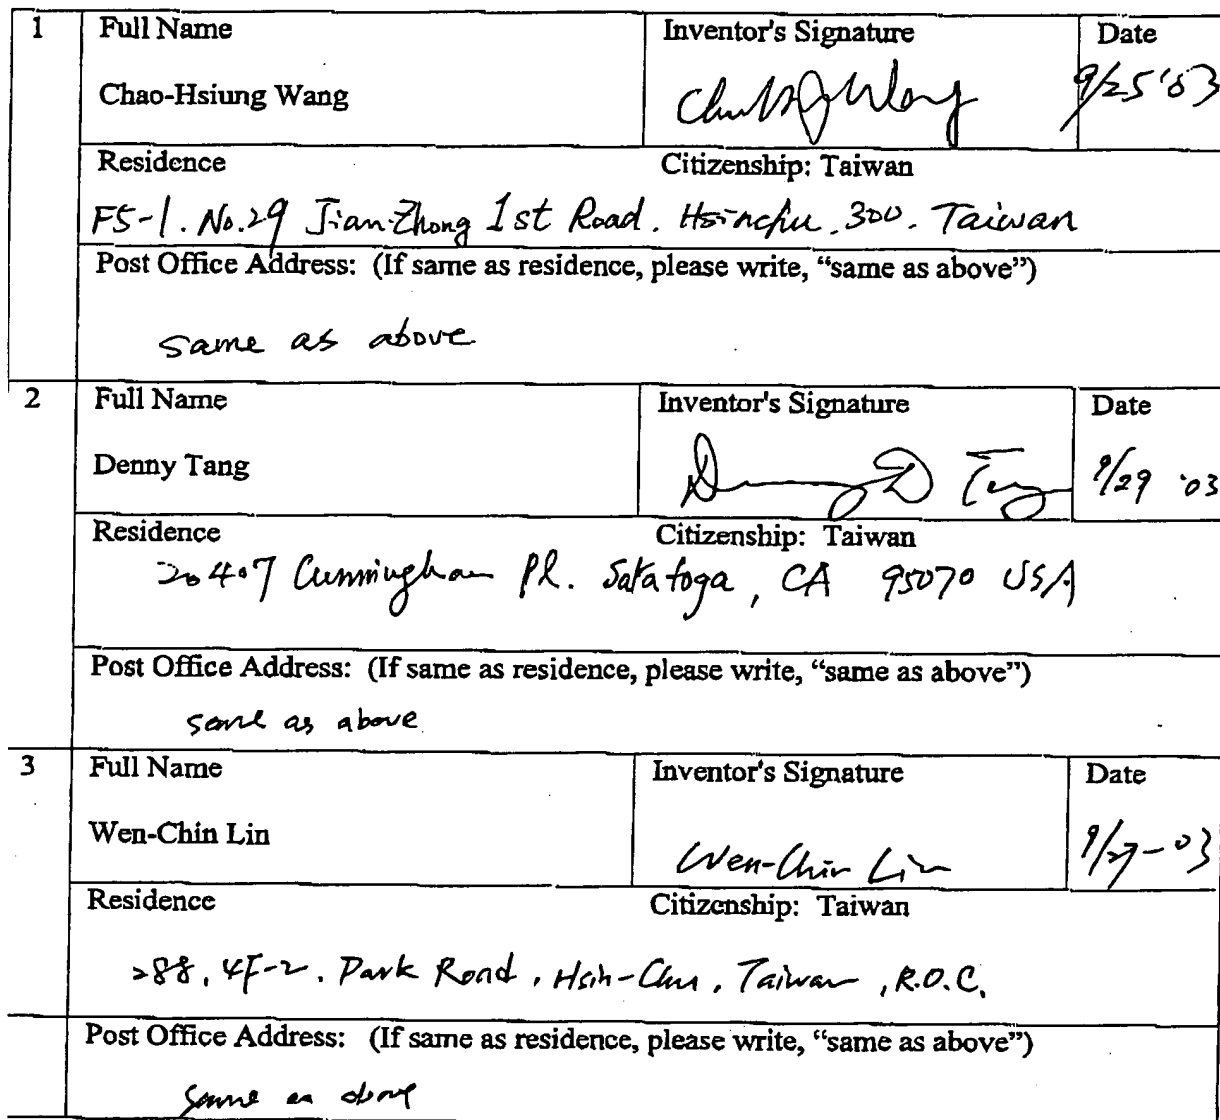 1 Full Name Inventor's Signature Date
Chao-Hsiung Wang 9/25 '03
Residence Citizenship: Taiwan
F5-1. No.29 Jian-Zhong 1st Road. Hsinchu. 300. Taiwan
Post Office Address: (If same as residence, please write, “same as above”)
same as above
2 Full Name Inventor's Signature Date
Denny Tang Denny D Tang 9/29 '03
Residence Citizenship: Taiwan
20407 Cunningham Pl. Saratoga, CA 95070 USA
Post Office Address: (If same as residence, please write, “same as above”)
same as above
3 Full Name Inventor's Signature Date
Wen-Chin Lin Wen-Chin Lin 9/27-03
Residence Citizenship: Taiwan
288, 4F-2. Park Road, Hsin-Chu, Taiwan, R.O.C.
Post Office Address: (If same as residence, please write, “same as above”)
same as above